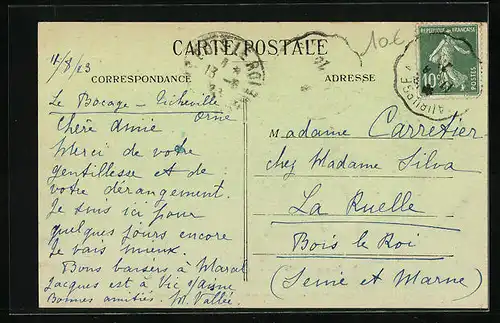 10€
CARTE POSTALE
CORRESPONDANCE
ADRESSE
RÉPUBLIQUE FRANÇAISE
10c
POSTES
11/8/23
Le Bocage - Ticheville
Orne
Chère Amie
Merci de votre
gentillesse et de
votre dérangement.
Je suis ici pour
quelques jours encore
Je vais mieux.
Bons baisers à Marcel
Jacques est à Vic s/Aisne
Bonnes amitiés. M. Vallée.
Madame Carretier
chez Madame Silva
La Ruelle
Bois le Roi
(Seine et Marne)